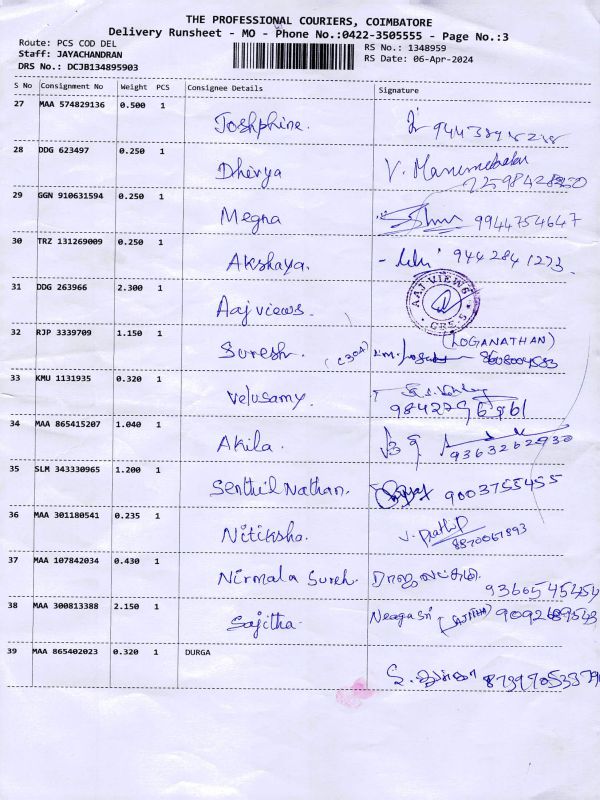 THE PROFESSIONAL COURIERS, COIMBATORE
Delivery Runsheet - MO - Phone No.:0422-3505555 - Page No.:3
Route: PCS COD DEL
Staff: JAYACHANDRAN
DRS No.: DCJB134895903
RS No.: 1348959
RS Date: 06-Apr-2024
S No Consignment No Weight PCS Consignee Details Signature
27 MAA 574829136 0.500 1 Joshphine.
28 DDG 623497 0.250 1 Dhivya
29 GGN 910631594 0.250 1 Megna 9944754647
30 TRZ 131269009 0.250 1 Akshaya. 944 284 1273.
31 DDG 263966 2.300 1 Aaj views. AAJ VIEWS
32 RJP 3339709 1.150 1 Suresh. (C304) (LOGANATHAN) 8608004583
33 KMU 1131935 0.320 1 Velusamy.
34 MAA 865415207 1.040 1 Akila. 9363262930
35 SLM 343330965 1.200 1 Senthil Nathan. 9003755455
36 MAA 301180541 0.235 1 Nitiksha. J. Prathip 8870067893
37 MAA 107842034 0.430 1 Nirmala Suresh. ராஜலட்சுமி. 9366545454
38 MAA 300813388 2.150 1 Sajitha. Neaga Sri (SAJITHA) 9092689543
39 MAA 865402023 0.320 1 DURGA